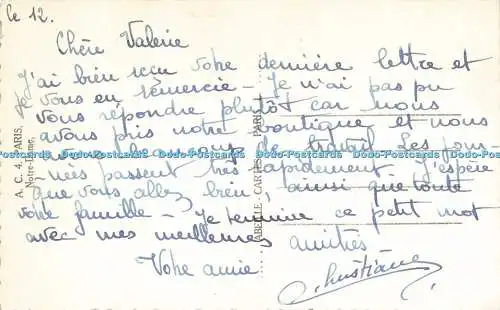 Le 12.
Chère Valérie
J'ai bien reçu votre dernière lettre et
vous en remercie - Je n'ai pas pu
vous répondre plutôt car nous
avons pris notre boutique et nous
avons plus de travail. Les jour-
-nées passent très rapidement - J'espère
que vous allez bien, ainsi que toute
votre famille - Je termine ce petit mot
avec mes meilleures amitiés
Votre amie
Christiane
A. C. 4. PARIS.
Notre-Dame,
ABEILLE-CARTES PARIS
Dodo-Postcards Dodo-Postcards Dodo-Postcards Dodo-Postcards Dodo-Postcards Dodo-Postcards